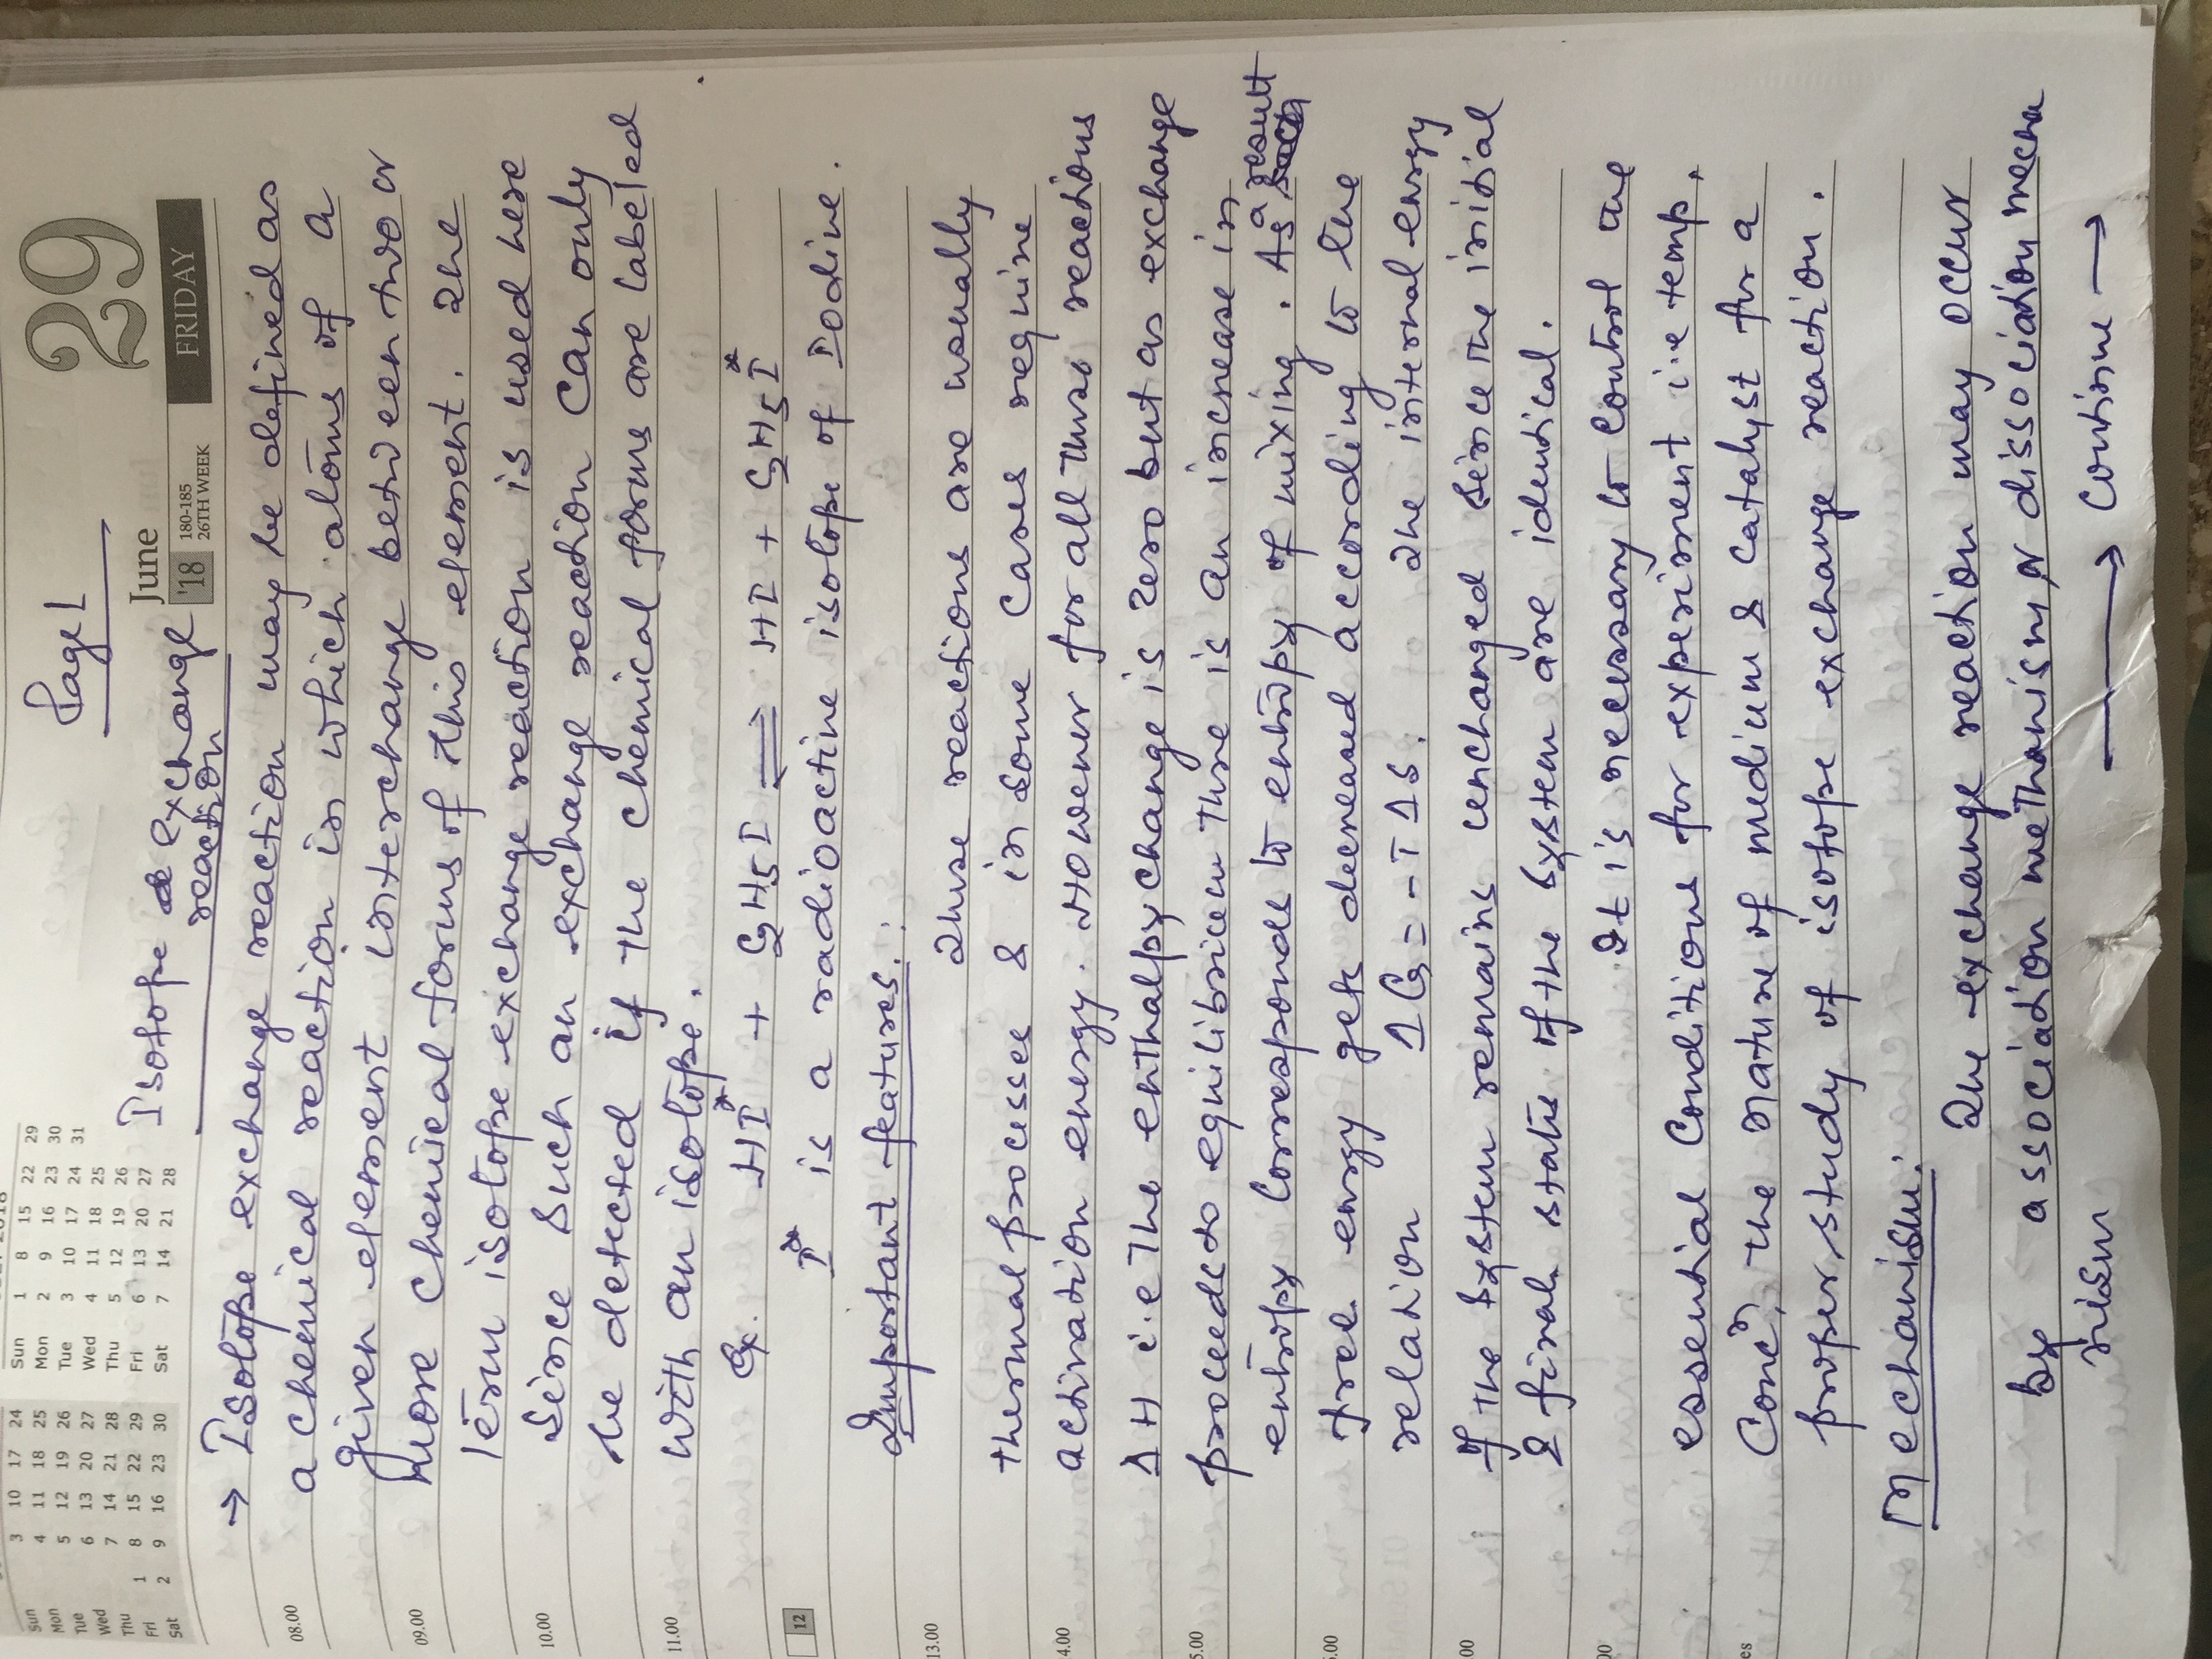 Page 1
29
June
'18
180-185
26TH WEEK
FRIDAY
Sun 3 10 17 24
Mon 4 11 18 25
Tue 5 12 19 26
Wed 6 13 20 27
Thu 7 14 21 28
Fri 1 8 15 22 29
Sat 2 9 16 23 30
Sun 1 8 15 22 29
Mon 2 9 16 23 30
Tue 3 10 17 24 31
Wed 4 11 18 25
Thu 5 12 19 26
Fri 6 13 20 27
Sat 7 14 21 28
Isotope exchange
reaction
→ Isotope exchange reaction may be defined as
08.00
a chemical reaction in which atoms of a
given element interchange between two or
09.00
more chemical forms of this element. The
term isotope exchange reaction is used here
10.00
since such an exchange reaction can only
be detected if the chemical forms are labeled
11.00
with an isotope.
Ex. HI* + C2H5I ⇌ HI + C2H5I*
12
I* is a radioactive isotope of Iodine.
Important features:
13.00
These reactions are usually
thermal processes & in some cases require
4.00
activation energy. However for all these reactions
ΔH i.e The enthalpy change is zero but as exchange
5.00
proceeds to equilibrium there is an increase in
entropy corresponds to entropy of mixing. As a result
5.00
free energy gets decreased according to the
relation ΔG = -TΔS. The internal energy
00
of the system remains unchanged since the initial
& final state of the system are identical.
00
It is necessary to control the
essential conditions for experiment i.e temp,
es
Concn, the nature of medium & catalyst for a
proper study of isotope exchange reaction.
Mechanism:
The exchange reaction may occur
by association mechanism or dissociation mecha
nism → Continue →